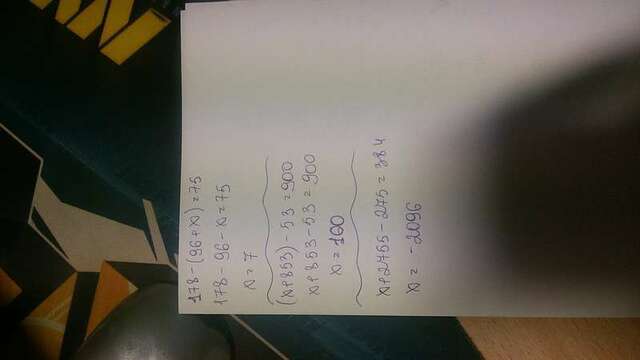 178-(96+x)=75
178-96-x=75
x=7
(x+853)-53=900
x+853-53=900
x=100
x+2755-275=384
x= -2096